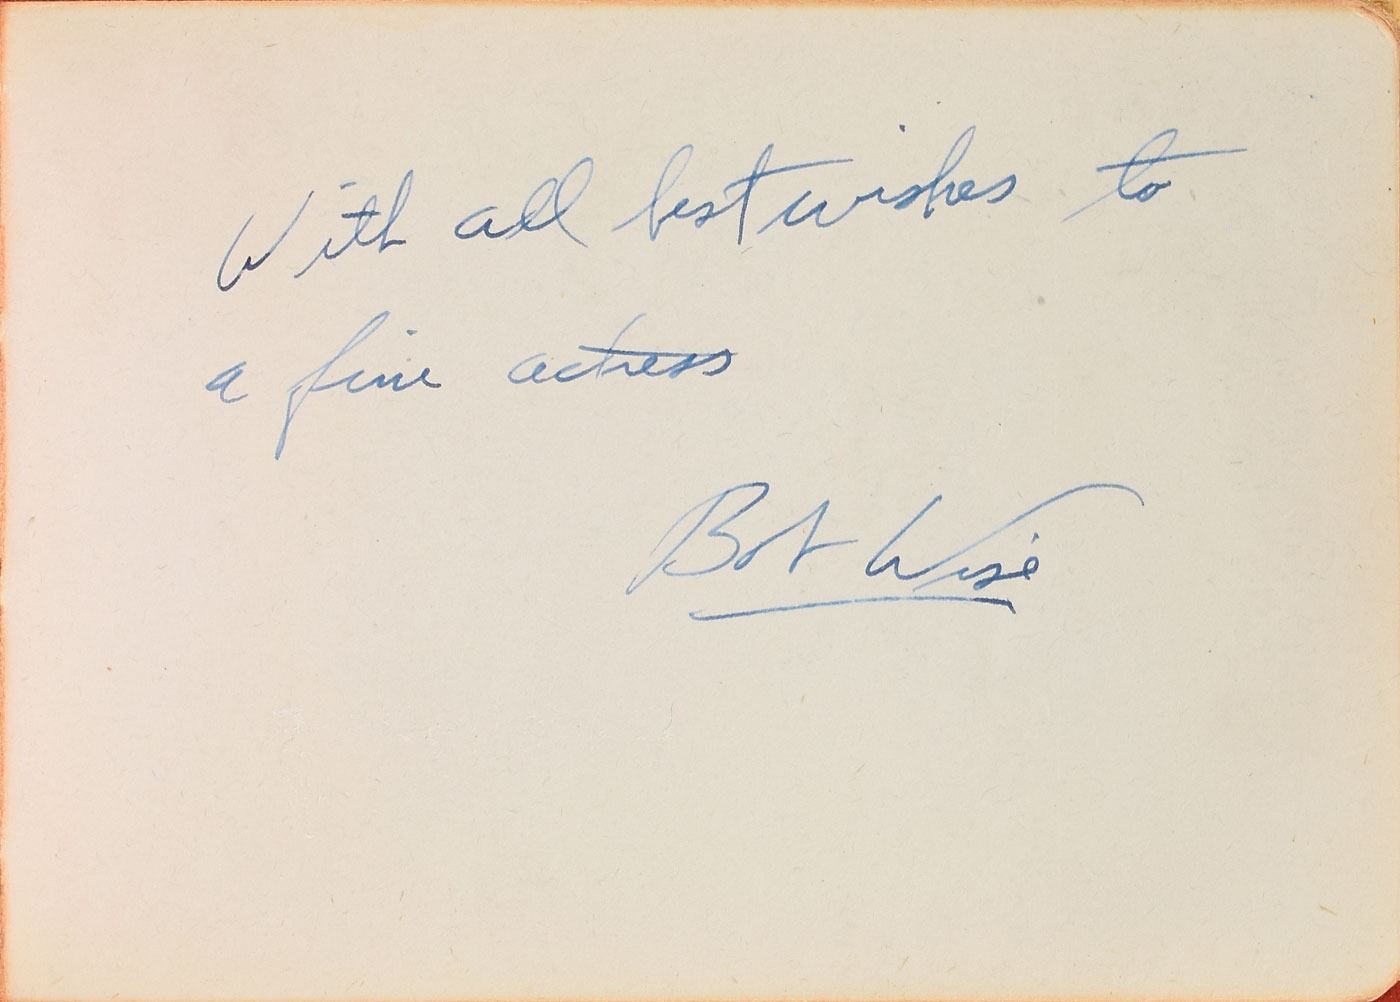 With all best wishes to
a fine actress
Bob Wise